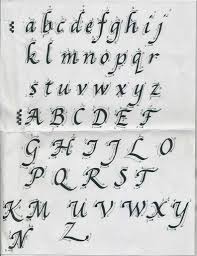 abcdefghij
klmnopqr
stuvwxyz
ABCDEF
GHIJLO
PQRST
KMUVWXY
N Z